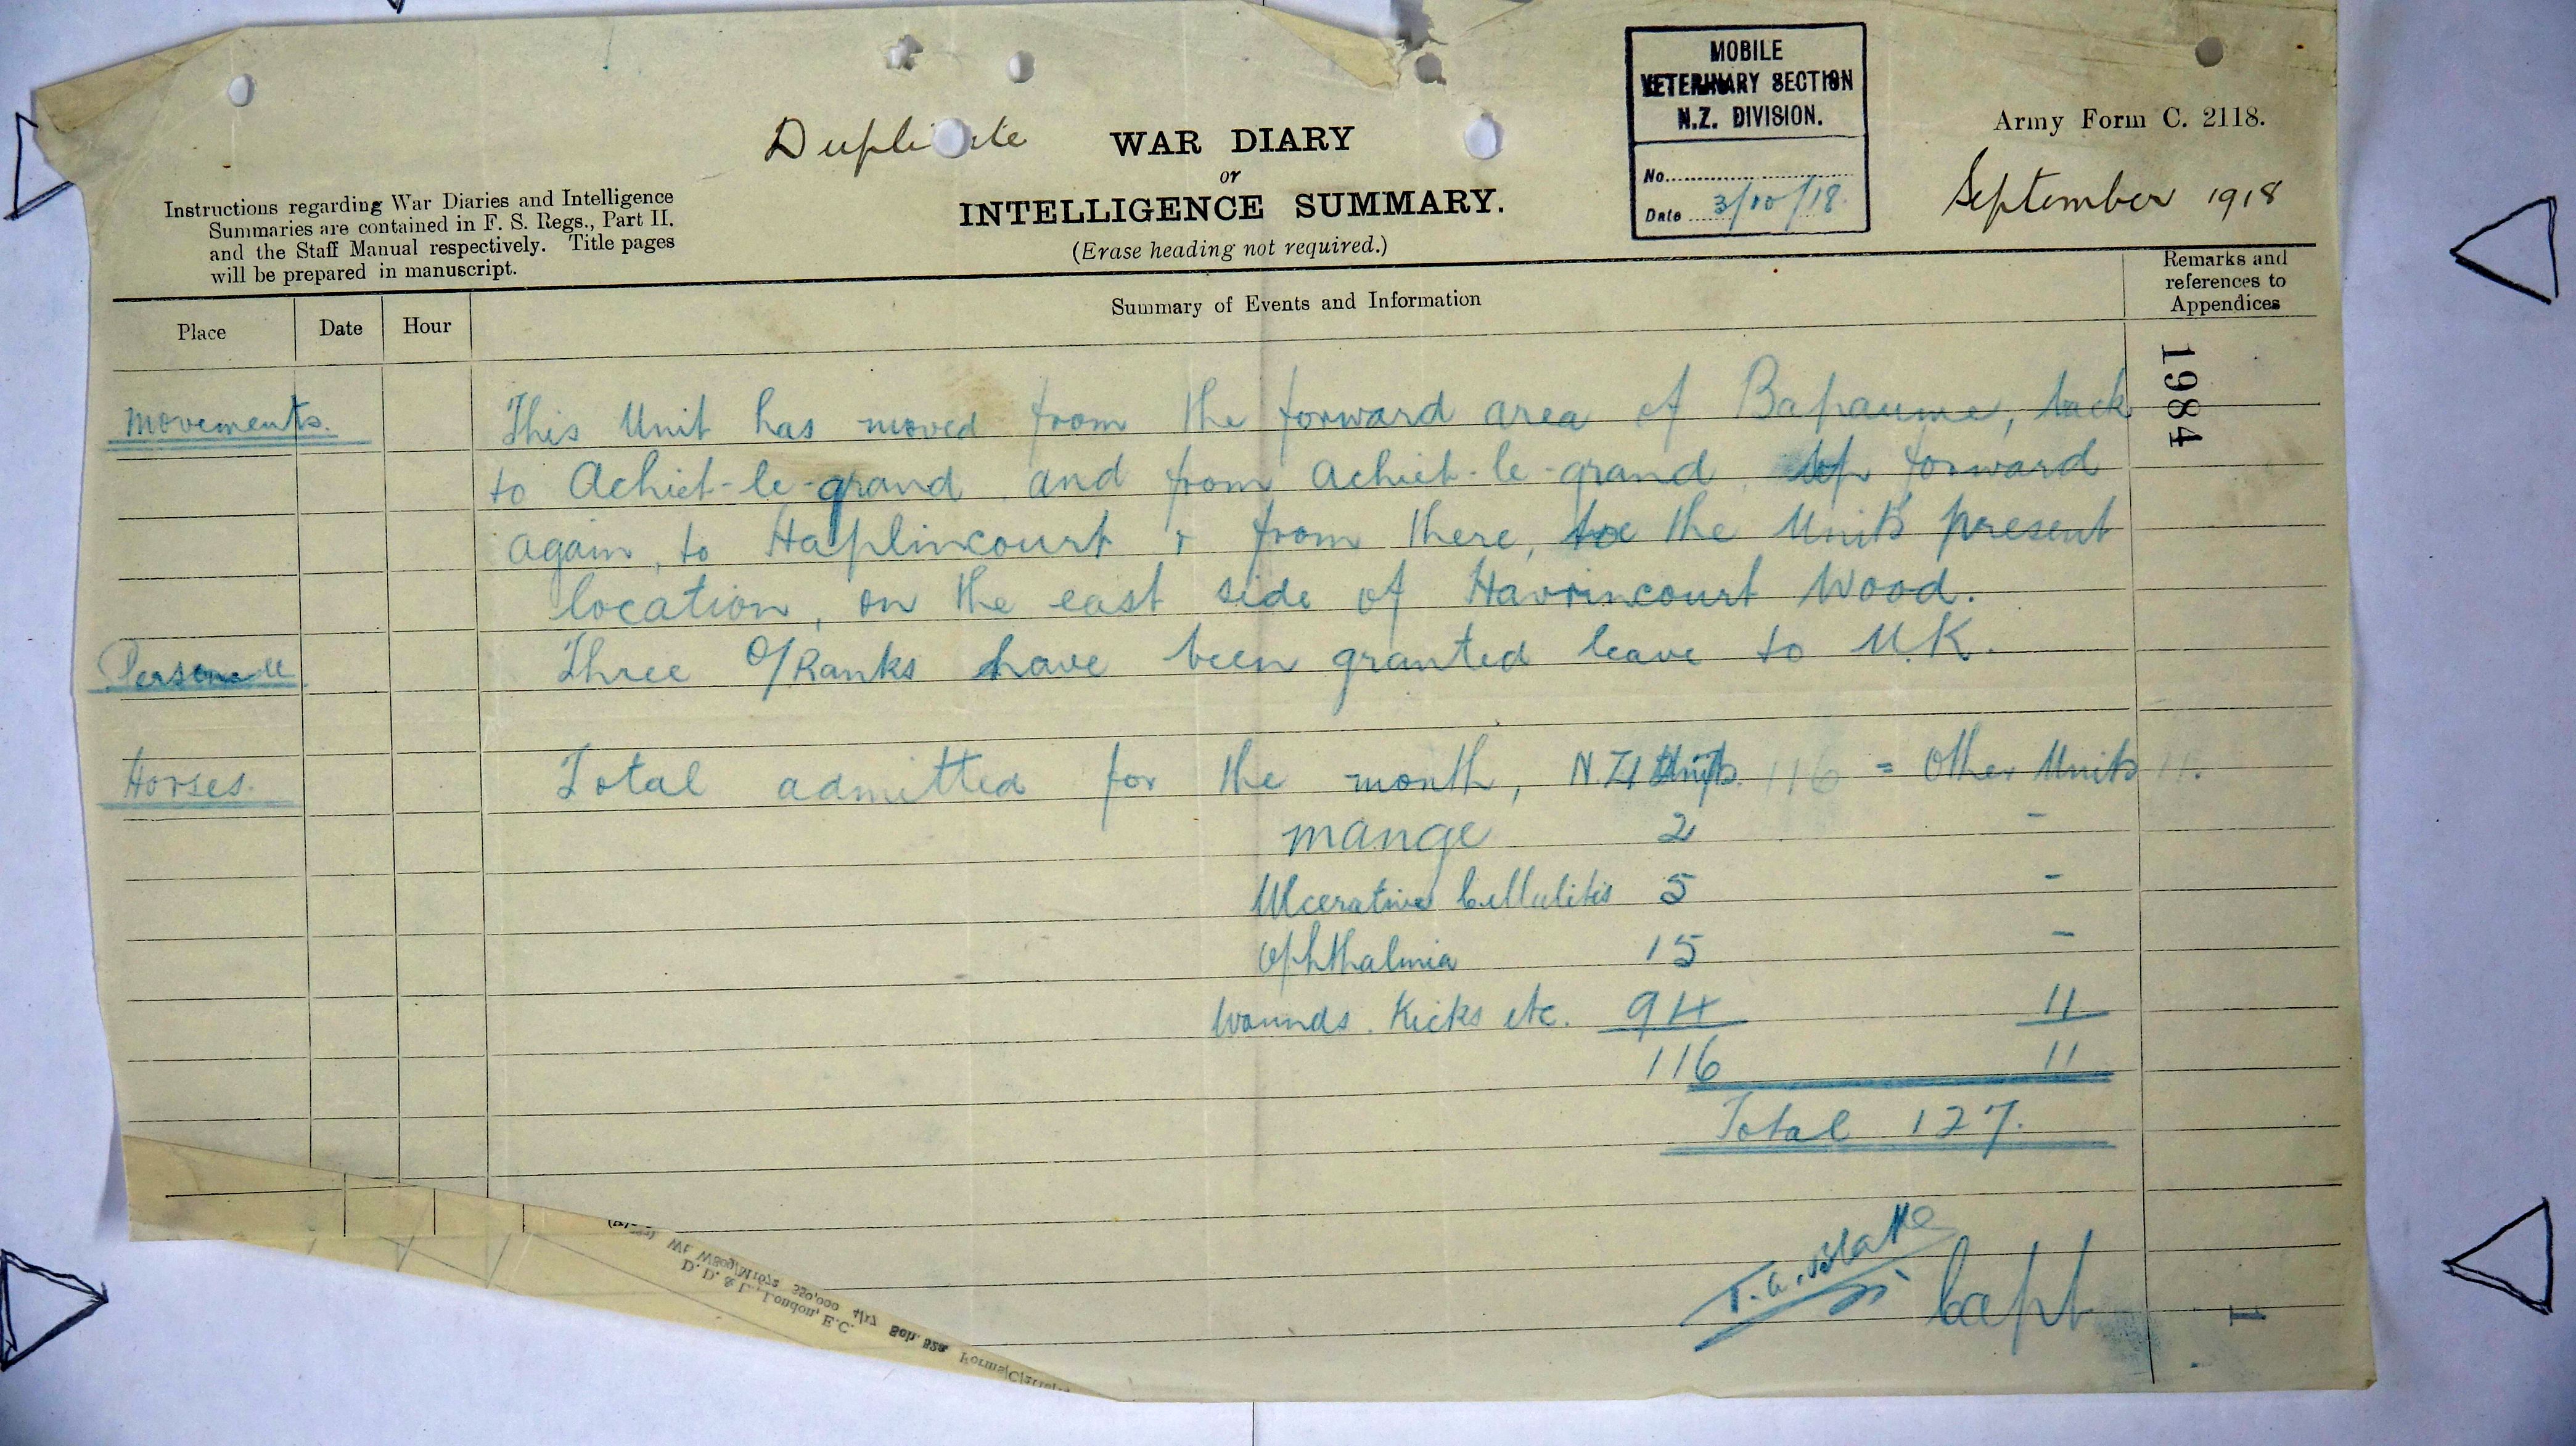 MOBILE
VETERINARY SECTION
N.Z. DIVISION.
No.
Date 3/10/18
Army Form C. 2118.
September 1918
Duplicate
WAR DIARY
or
INTELLIGENCE SUMMARY.
(Erase heading not required.)
Instructions regarding War Diaries and Intelligence
Summaries are contained in F. S. Regs., Part II.
and the Staff Manual respectively. Title pages
will be prepared in manuscript.
Place Date Hour Summary of Events and Information Remarks and
references to
Appendices
1984
Movements. This Unit has moved from the forward area of Bapaume, back
to Achiet-le-grand and from Achiet-le-grand up forward
again, to Haplincourt & from there, to the Units present
location, on the east side of Havrincourt Wood.
Personell Three O/Ranks have been granted leave to U.K.
Horses. Total admitted for the month, N.Z. Units. 116 = Other Units 11.
Mange 2 -
Ulcerative Cellulitis 5 -
Ophthalmia 15 -
Wounds. Kicks etc. 94 11
116 11
Total 127.
Capt
D. D. & L., London, E.C.
Wt. W809/M1672 350,000 4/17 Sch. 52a Forms/C/2118/